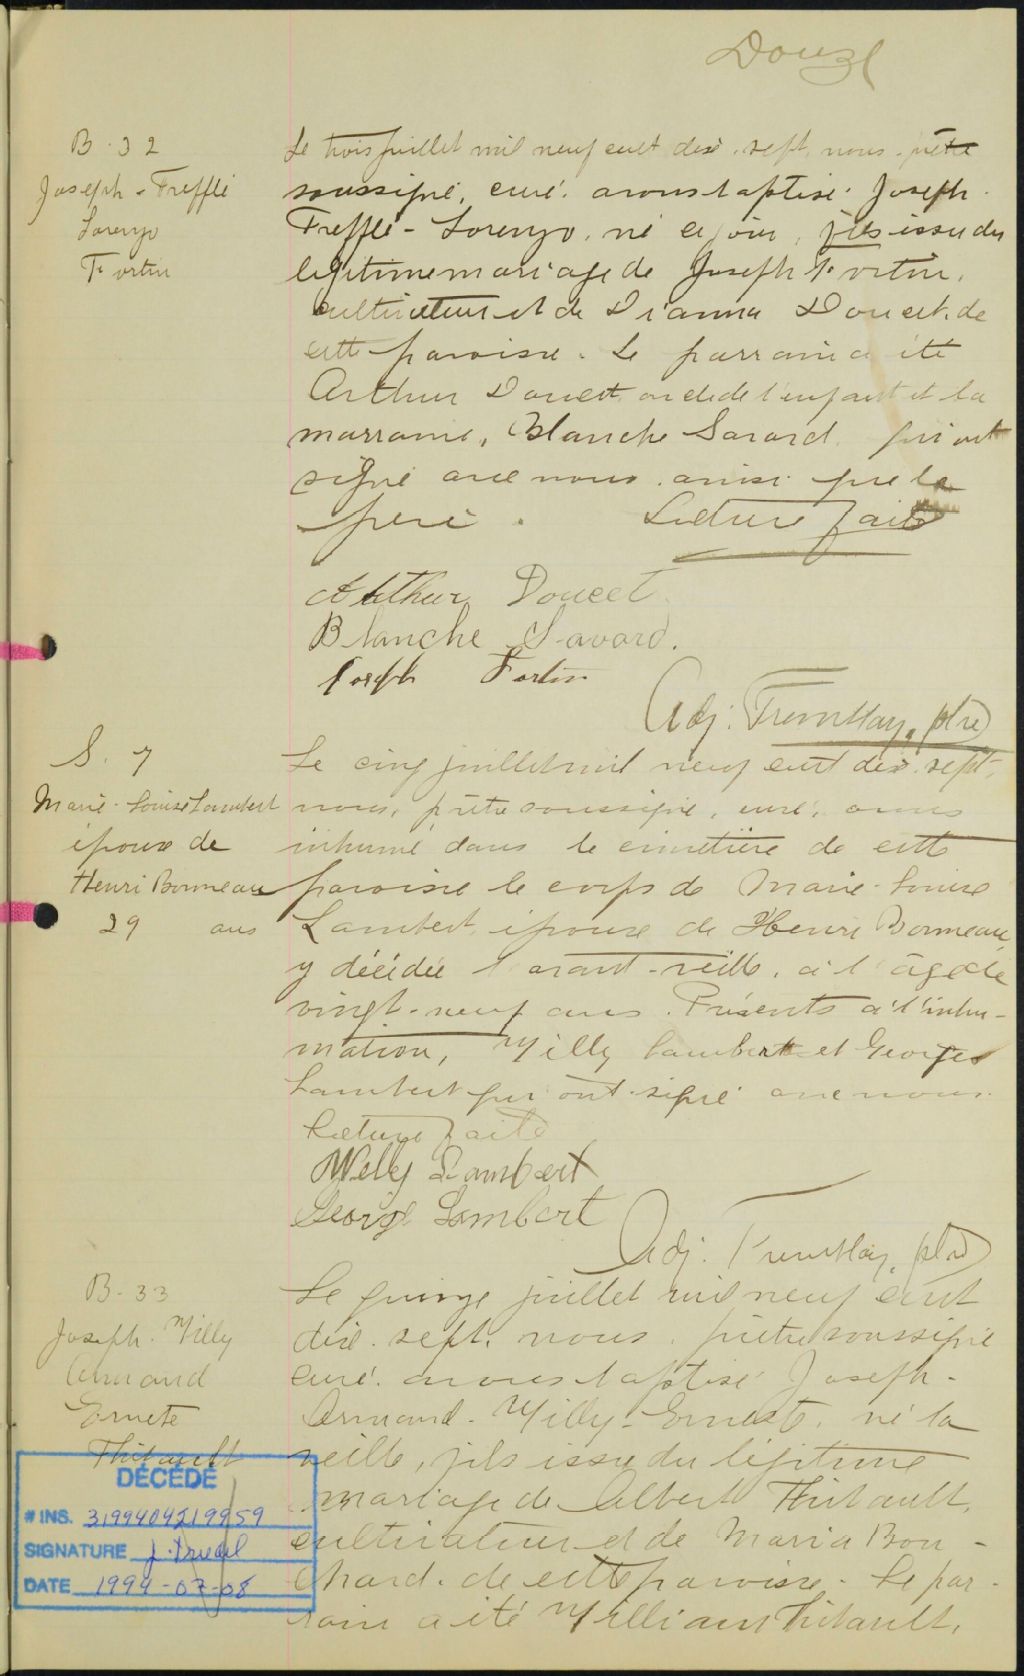 Douze
B. 32
Joseph-Treffle
Lorenzo
Fortin
Le trois juillet mil neuf cent dix-sept, nous, prêtre
soussigné, curé, avons baptisé Joseph-
Treffle-Lorenzo, né ce jour, fils issu du
légitime mariage de Joseph Fortin,
cultivateur et de Dianna Doucet, de
cette paroisse. Le parrain a été
Arthur Doucet, oncle de l'enfant et la
marraine, Blanche Savard, qui ont
signé avec nous ainsi que le
père. Lecture faite
Arthur Doucet
Blanche Savard.
Joseph Fortin
Adj. Tremblay, ptre
S. 7
Marie-Louise Lambert
épouse de
Henri Bonneau
29 ans
Le cinq juillet mil neuf cent dix-sept,
nous, prêtre soussigné, curé, avons
inhumé dans le cimetière de cette
paroisse le corps de Marie-Louise
Lambert, épouse de Henri Bonneau,
y décédée l'avant-veille, à l'âge de
vingt-neuf ans. Présents à l'inhu-
mation, Willy Lambert et Georges
Lambert qui ont signé avec nous.
Lecture faite
Welly Lambert
George Lambert
Adj. Tremblay, ptre
B-33
Joseph-Willy
Armand
Erneste
Thibault
Le quinze juillet mil neuf cent
dix-sept, nous, prêtre soussigné
curé, avons baptisé Joseph-
Armand-Willy-Erneste, né la
veille, fils issu du légitime
mariage de Albert Thibault,
cultivateur et de Maria Bou-
chard, de cette paroisse. Le par-
rain a été William Thibault,
DÉCÉDÉ
# INS. 3199404219959
SIGNATURE
DATE 1994-07-08